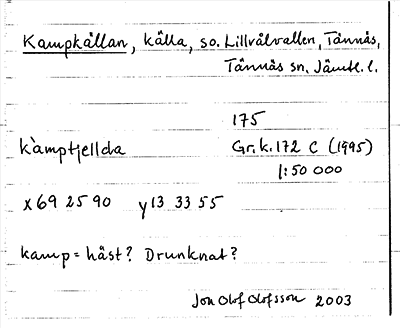 Kampkällan, källa, so. Lillvålvallen, Tännäs,
Tännäs sn, Jämtl. l.
175
kàmptjellda Gr.k. 172 C (1995)
1:50 000
x 69 25 90 y 13 33 55
kamp = häst? Drunknat?
Jon Olof Olofsson 2003